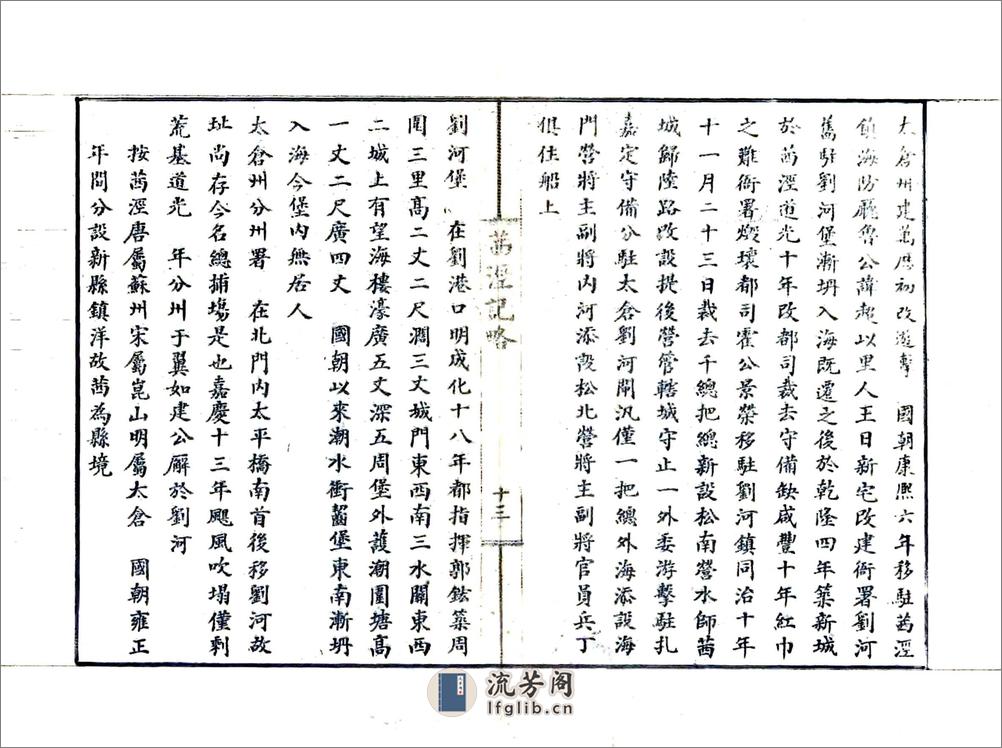 太倉州建萬厯初改遊擊　國朝康熙六年移駐茜涇
鎮海防廳魯公諱超以里人王日新宅改建衙署劉河
舊駐劉河堡漸坍入海既遷之後於乾隆四年築新城
於茜涇道光十年改都司裁去守備缺咸豐十年紅巾
之難衙署燬壞都司霍公景榮移駐劉河鎮同治十年
十一月二十三日裁去千總把總新設松南營水師茜
城歸陸路改設提後營管轄城守止一外委游擊駐扎
嘉定守備分駐太倉劉河閙汛僅一把總外海添設海
門營將主副將內河添設松北營將主副將官員兵丁
俱住船上
茜涇記略
十三
劉河堡　在劉港口明成化十八年都指揮郭鋐築周
圍三里高二丈二尺濶三丈城門東西南三水關東西
二城上有望海樓濠廣五丈深五周堡外護潮圍塘高
一丈二尺廣四丈　國朝以來潮水衝齧堡東南漸坍
入海今堡內無居人
太倉州分州署　在北門內太平橋南首後移劉河故
址尚存今名總捕塲是也嘉慶十三年颶風吹塌僅剩
荒基道光　年分州于翼如建公廨於劉河
按茜涇唐屬蘇州宋屬崑山明屬太倉　國朝雍正
年間分設新縣鎮洋故茜為縣境
流芳阁
lfglib.cn